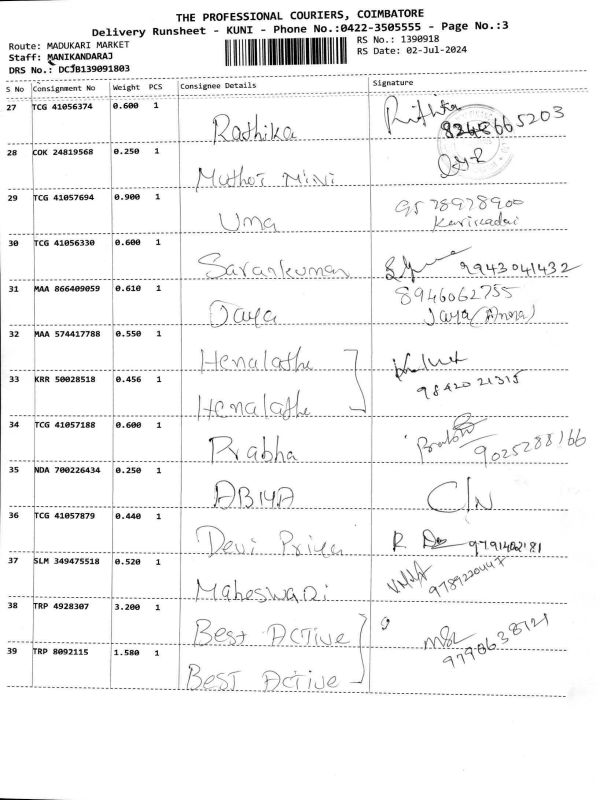 THE PROFESSIONAL COURIERS, COIMBATORE
Delivery Runsheet - KUNI - Phone No.:0422-3505555 - Page No.:3
Route: MADUKARI MARKET
RS No.: 1390918
Staff: MANIKANDARAJ
RS Date: 02-Jul-2024
DRS No.: DCJB139091803
S No Consignment No Weight PCS Consignee Details Signature
27 TCG 41056374 0.600 1
Rathika 8248665203
28 COK 24819568 0.250 1
Muthoot Mini
29 TCG 41057694 0.900 1
Uma 9578978900
30 TCG 41056330 0.600 1
Sarankumar 9943041432
31 MAA 866409059 0.610 1
8946062755
Jaya Jaya (Amma)
32 MAA 574417788 0.550 1
Hemalathe
33 KRR 50028518 0.456 1
9842021315
Hemalathe
34 TCG 41057188 0.600 1
Prabha 9025288166
35 NDA 700226434 0.250 1
ABIYA C/N
36 TCG 41057879 0.440 1
Devi Priya 9791402181
37 SLM 349475518 0.520 1
Maheswari 9789220447
38 TRP 4928307 3.200 1
Best Active
39 TRP 8092115 1.580 1
9790638121
Best Active